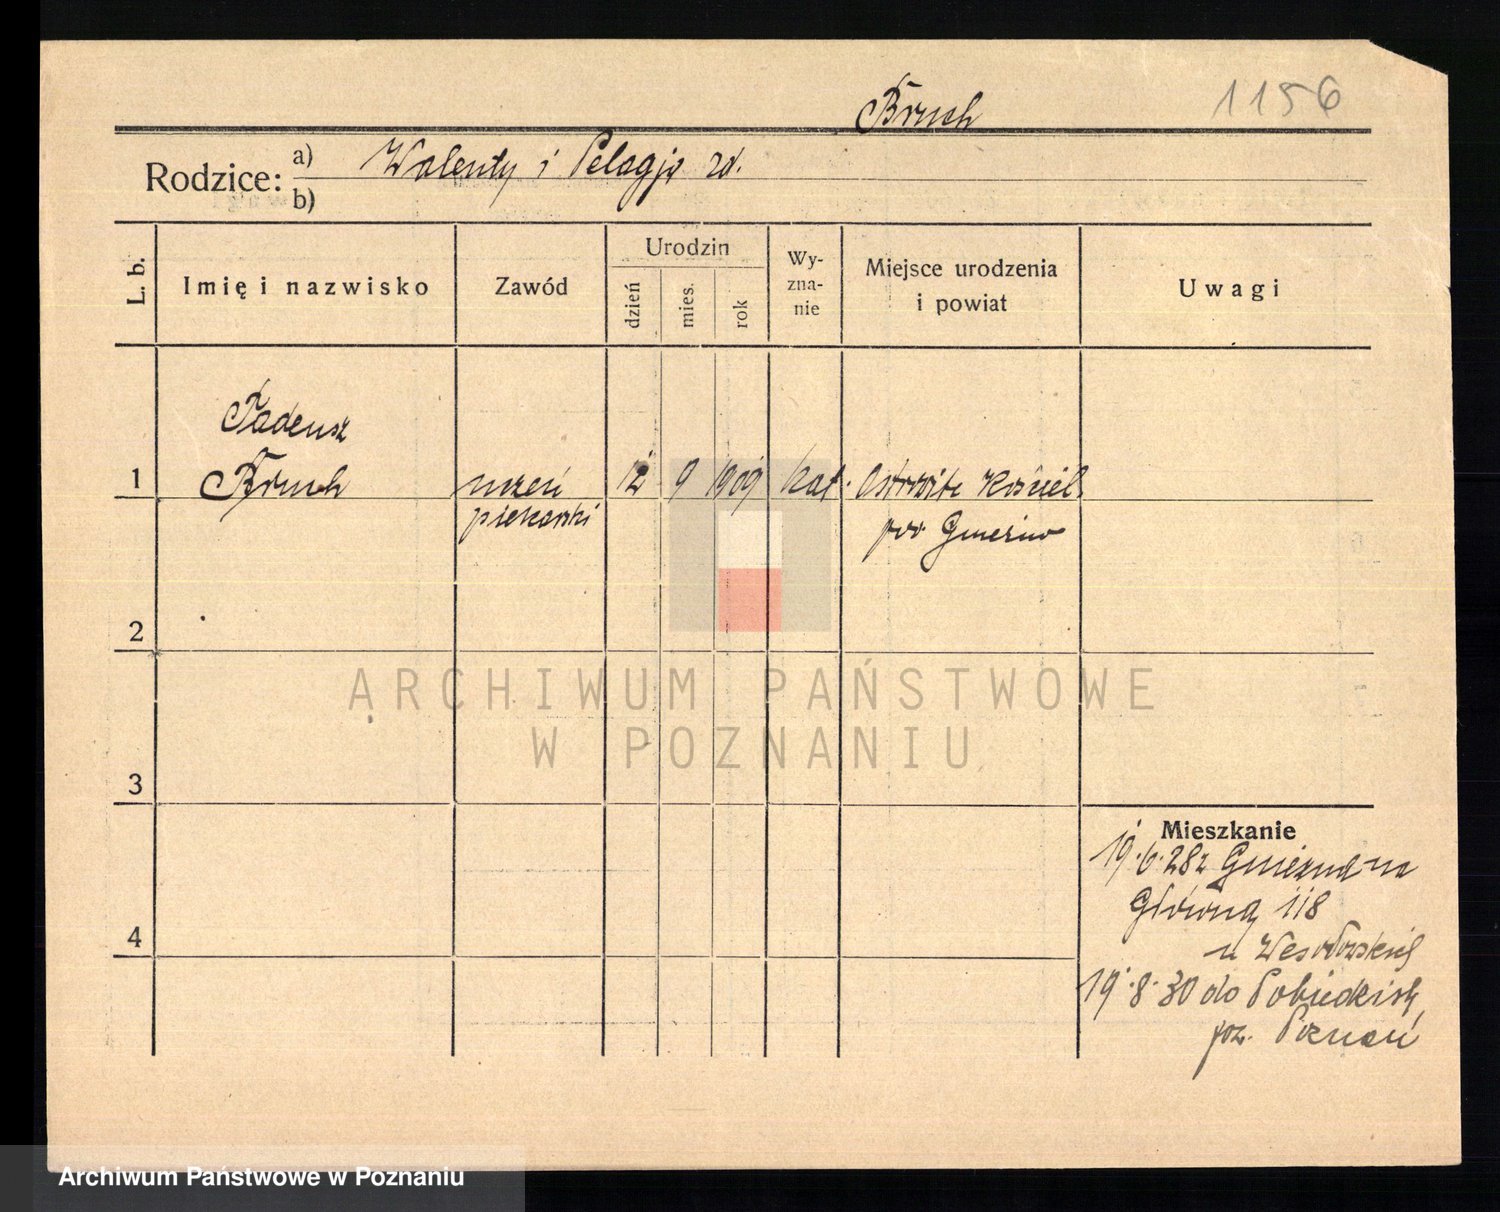 Bruch
1156
Rodzice: a) Walenty i Pelagja zd.
b)
L. b.
Imię i nazwisko
Zawód
Urodzin
dzień
mies.
rok
Wy-
zna-
nie
Miejsce urodzenia
i powiat
Uwagi
1
Tadeusz
Bruch
uczeń
piekarski
12
9
1909
kat.
Ostrowite Kościel.
pow Gniezno
2
3
4
Mieszkanie
19.6.28 z Gniezna na
Główną 118
u Wesołowskiej
19.8.30 do Pobiedzisk,
Poznań
ARCHIWUM PAŃSTWOWE
W POZNANIU
Archiwum Państwowe w Poznaniu